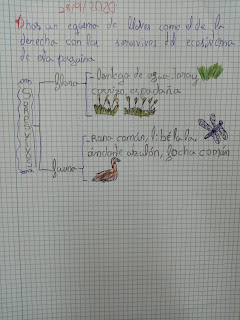 28/9/2020
un esquema de llaves como el de la
derecha con los seres vivos del ecosistema
de esa pagina
flora
lenteja de agua, lirio y
carrizo, espadaña
fauna
Rana común, libélula,
ánade azulón, focha común